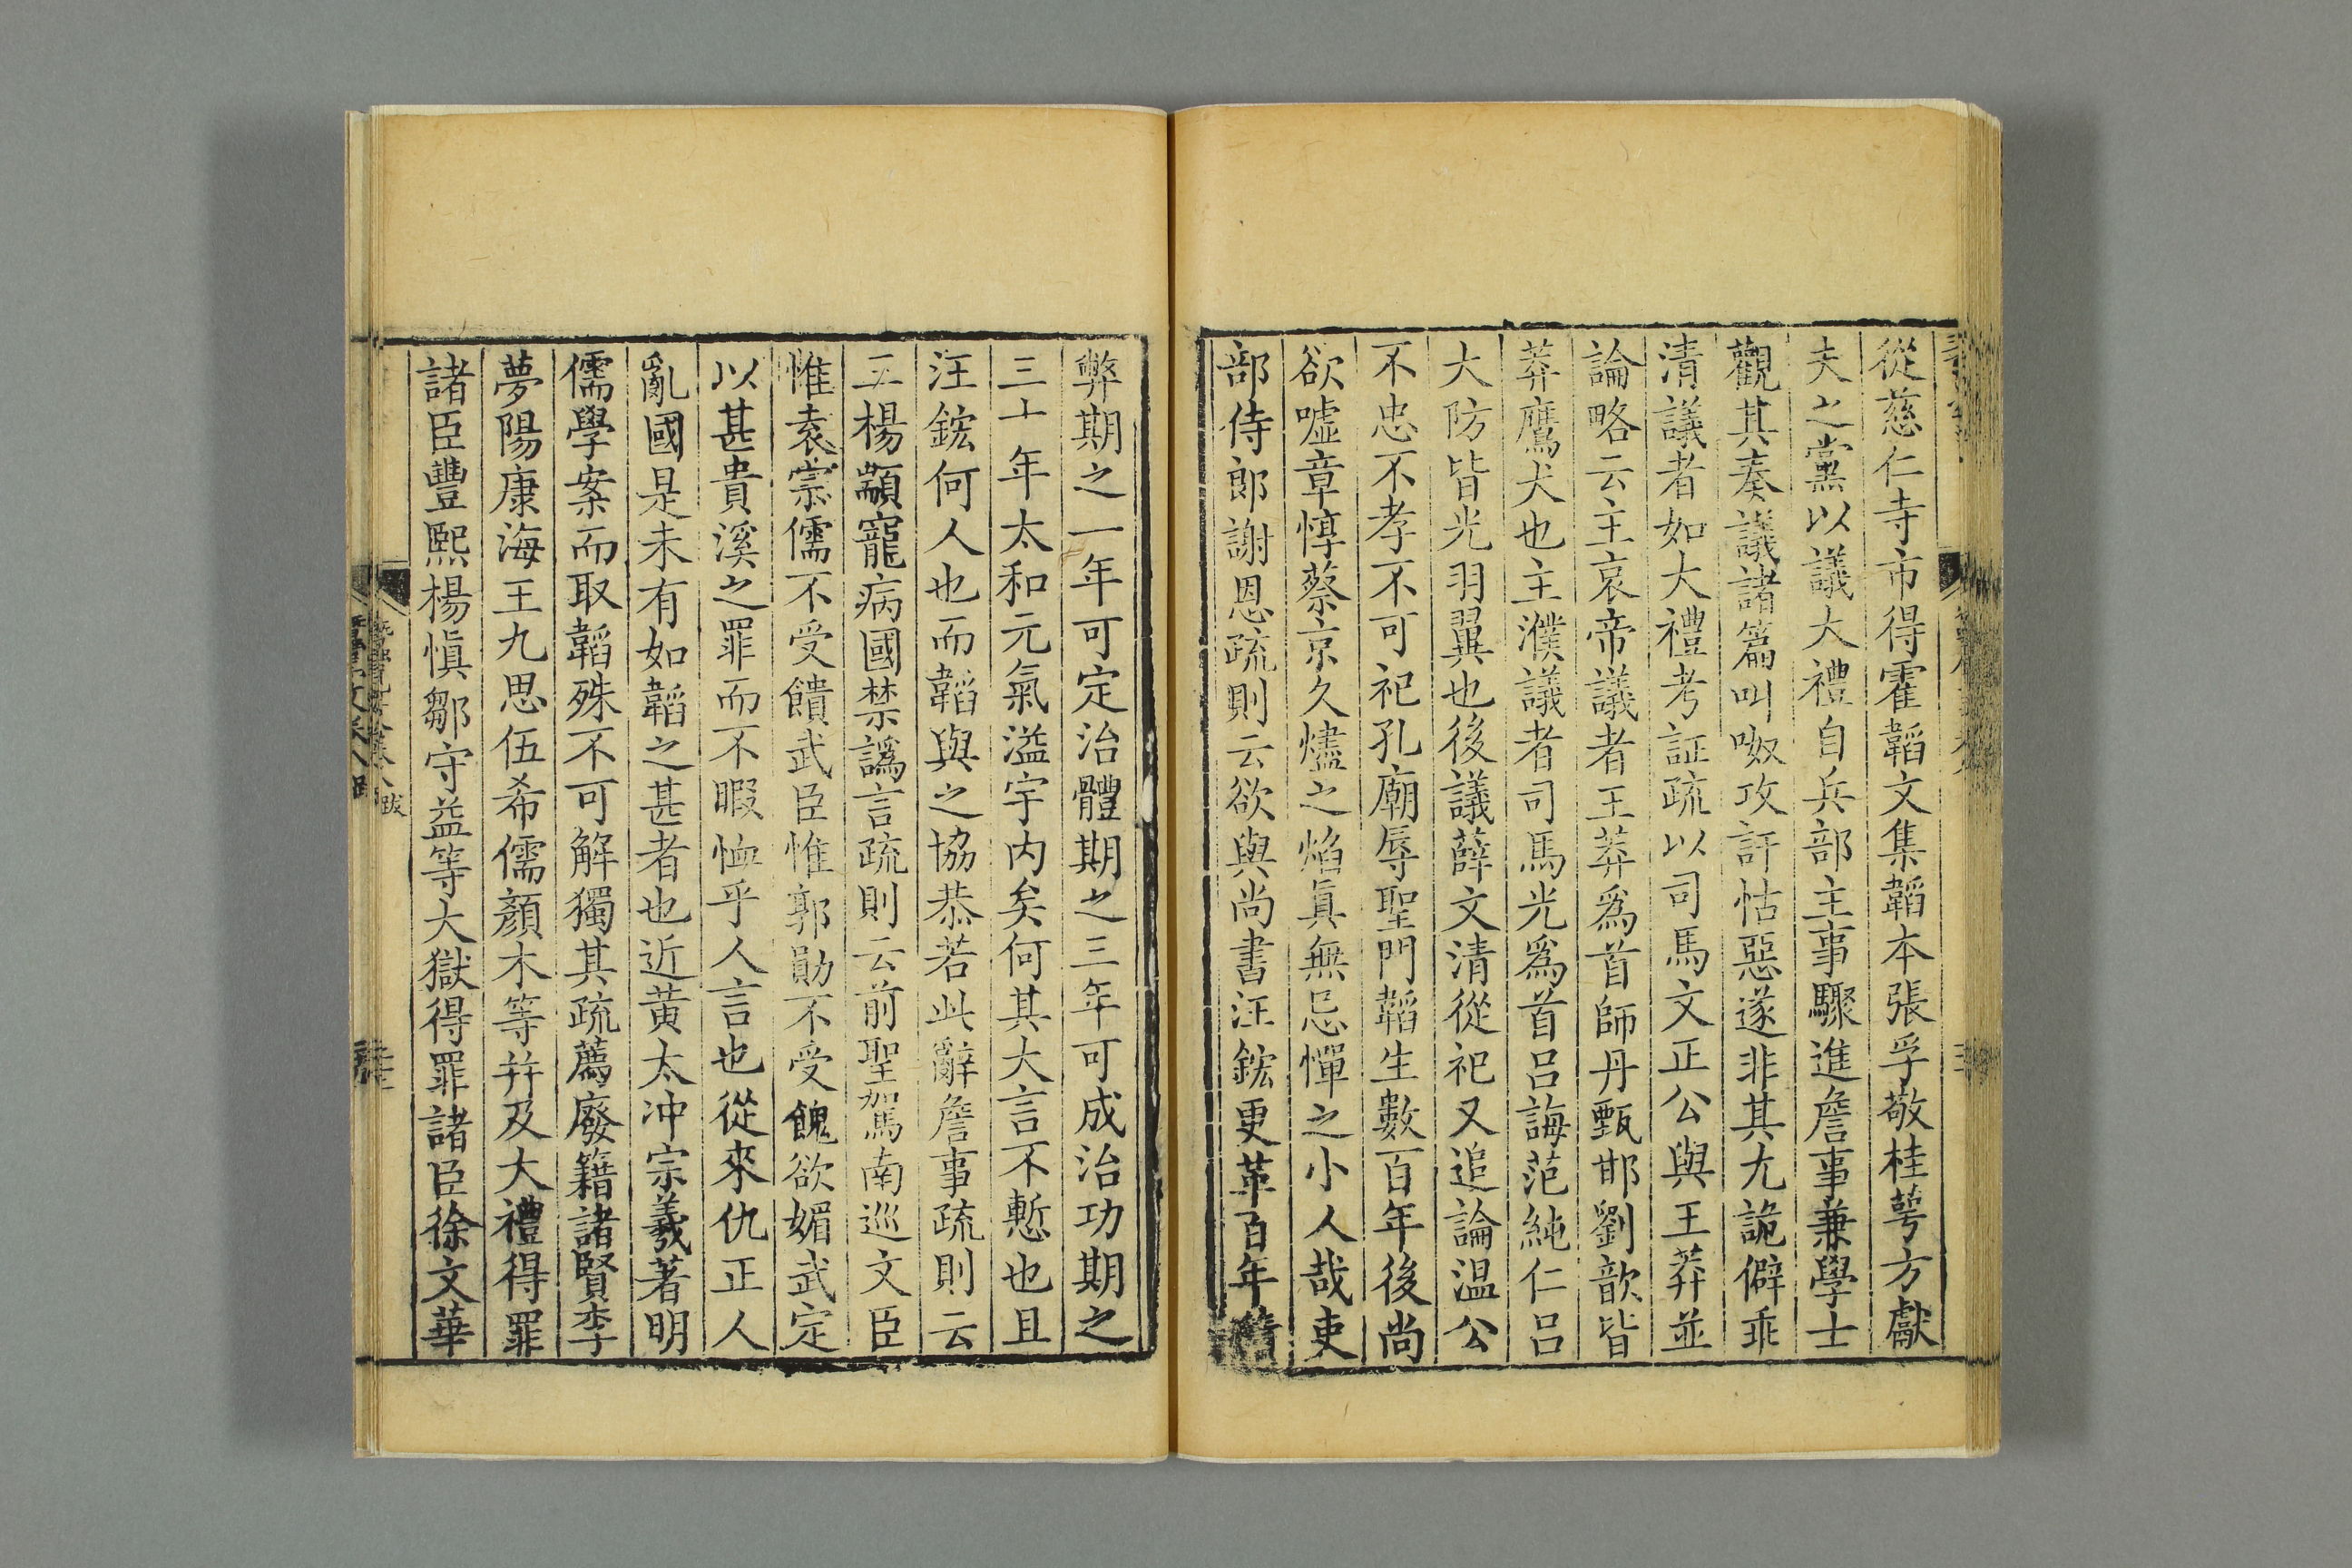 從慈仁寺市得霍韜文集韜本張孚敬桂萼方獻
夫之黨以議大禮自兵部主事驟進詹事兼學士
觀其奏議諸篇叫呶攻訐怙惡遂非其尢詭僻乖
清議者如大禮考証疏以司馬文正公與王莽並
論略云主哀帝議者王莽爲首師丹甄邯劉歆皆
莽鷹犬也主濮議者司馬光爲首呂誨范純仁呂
大防皆光羽翼也後議薛文清從祀又追論温公
不忠不孝不可祀孔廟辱聖門韜生數百年後尚
欲噓章惇蔡京久燼之焰眞無忌憚之小人哉吏
部侍郎謝恩疏則云欲與尚書汪鋐更革百年積
弊期之一年可定治體期之三年可成治功期之
三十年太和元氣溢宇内矣何其大言不慙也且
汪鋐何人也而韜與之協恭若此辭詹事疏則云
三楊顓寵病國禁譌言疏則云前聖駕南巡文臣
惟袁宗儒不受饋武臣惟郭勛不受餽欲媚武定
以甚貴溪之罪而不暇恤乎人言也從來仇正人
亂國是未有如韜之甚者也近黄太冲宗羲著明
儒學案而取韜殊不可解獨其疏薦廢籍諸賢李
夢陽康海王九思伍希儒顏木等并及大禮得罪
諸臣豐熙楊愼鄒守益等大獄得罪諸臣徐文華